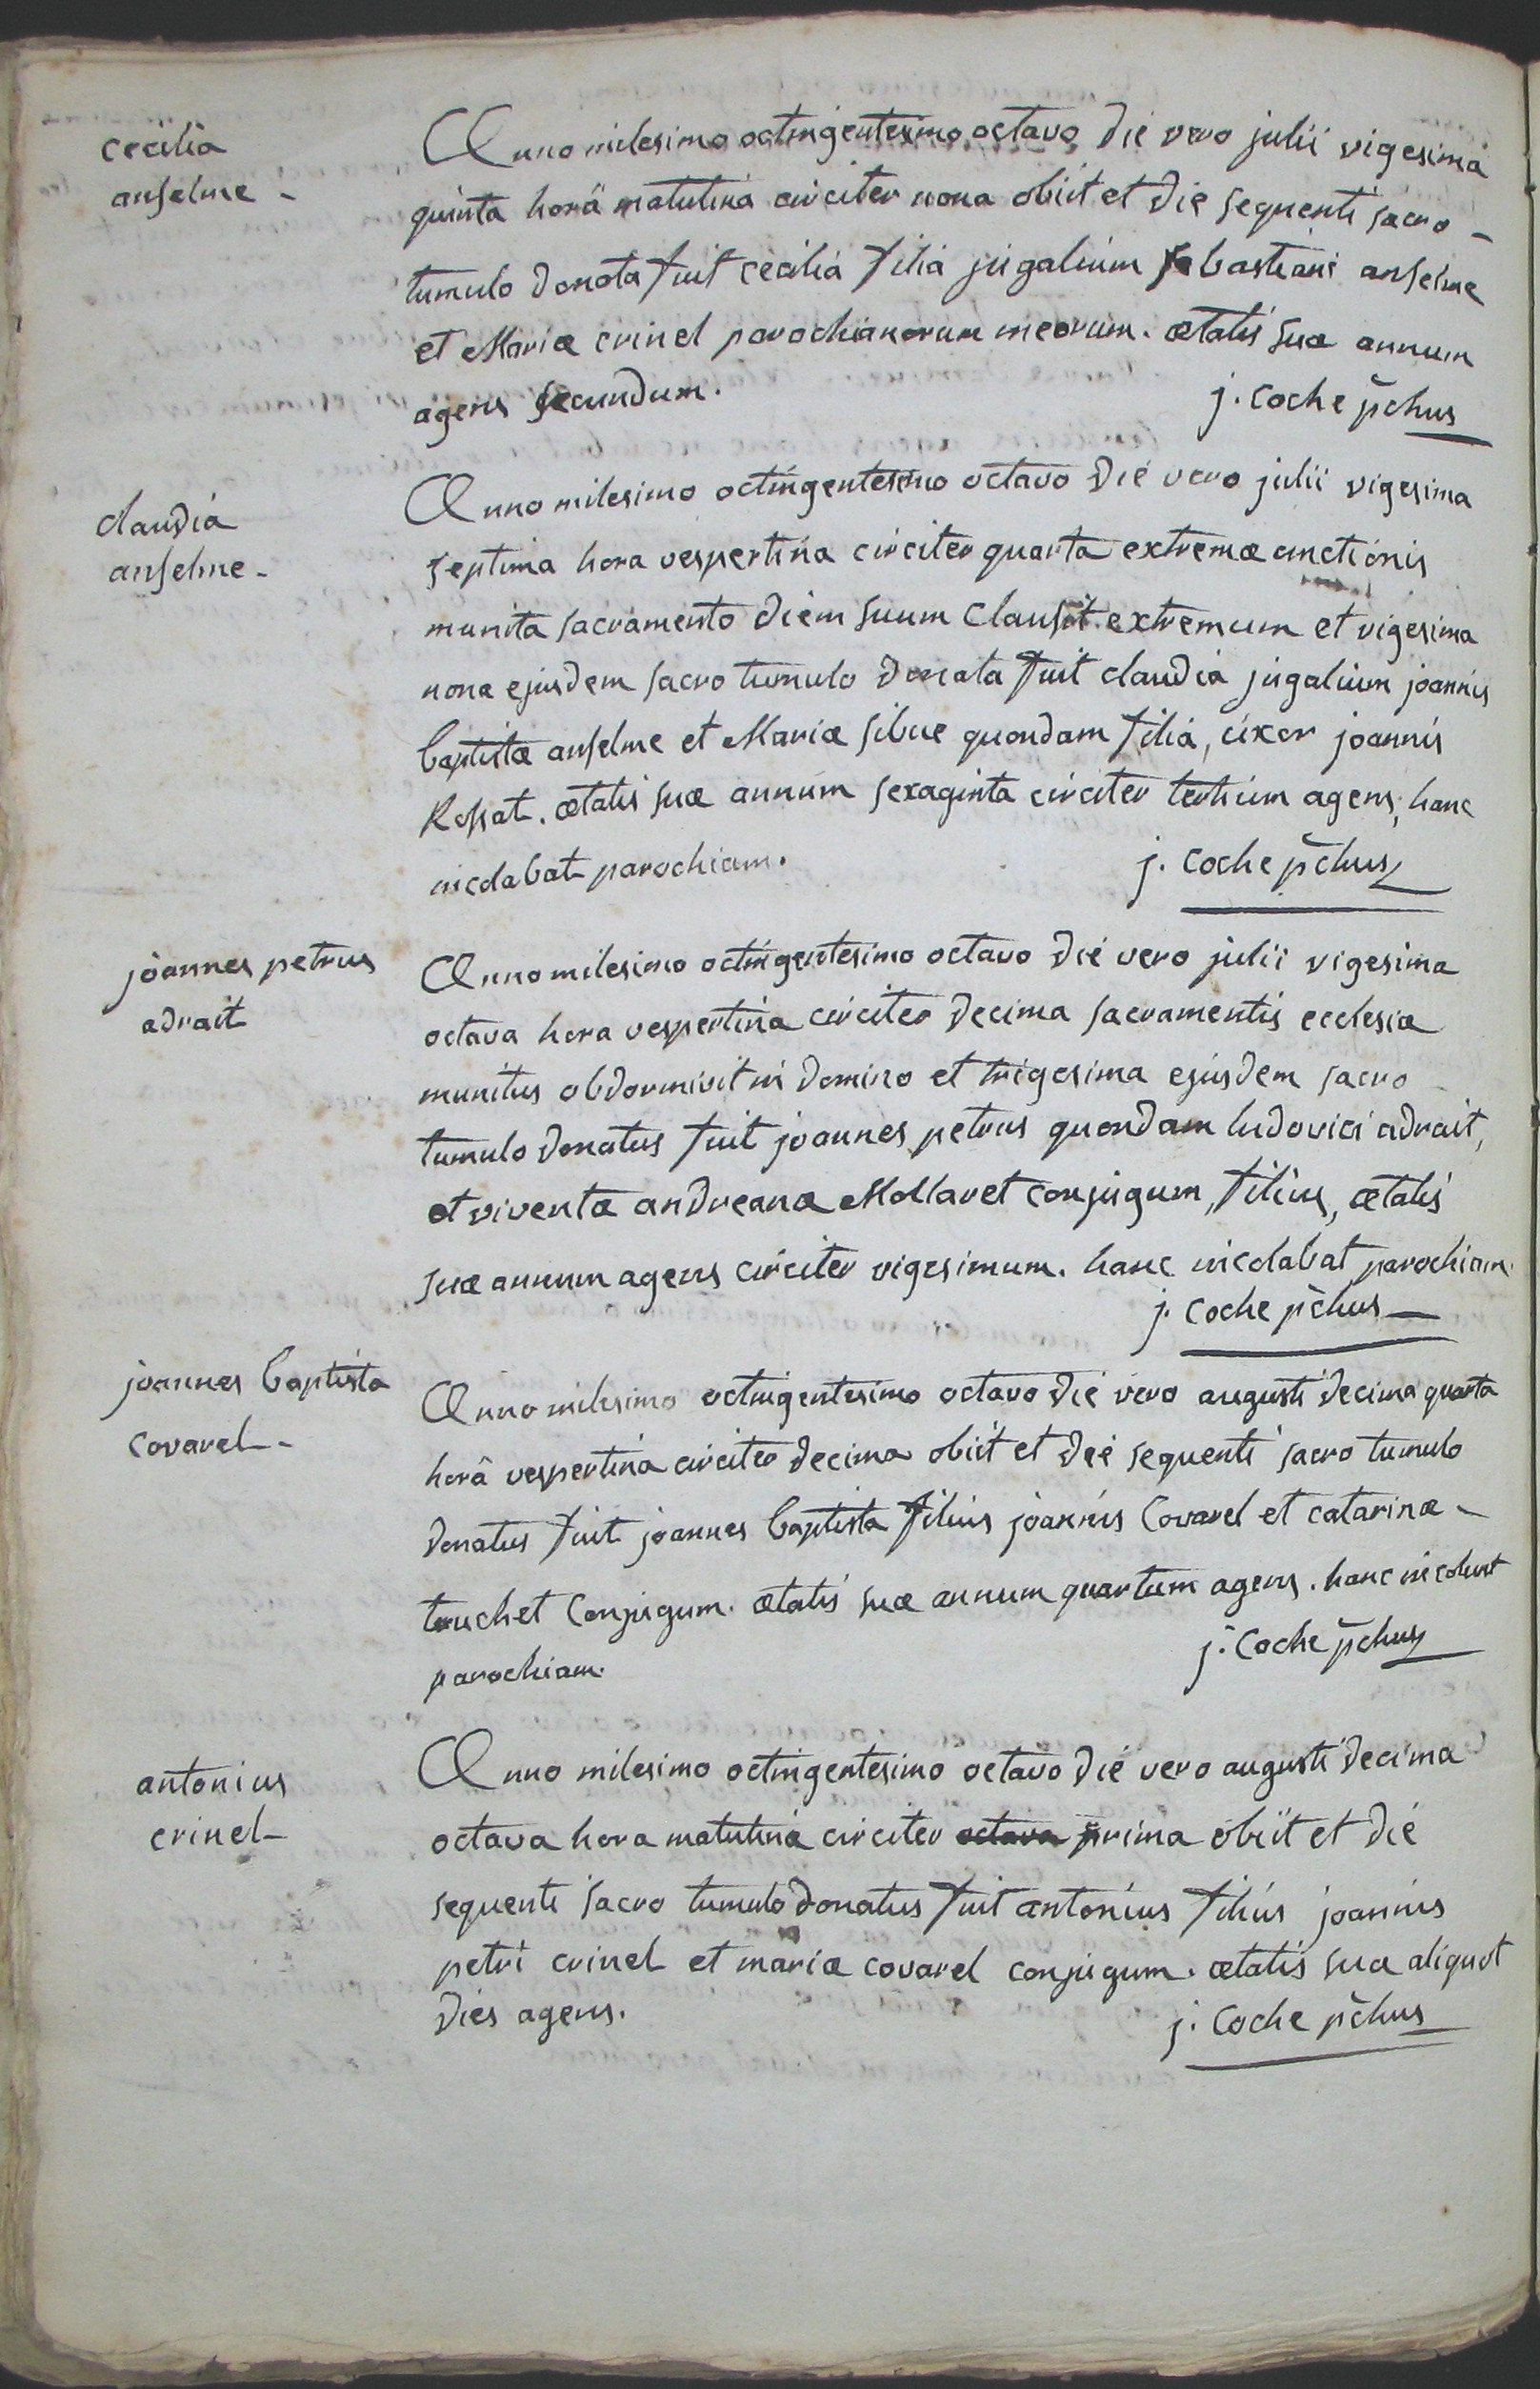 cecilia
anselme -
Anno milesimo octingentesimo octavo die vero julii vigesima
quinta horâ matutina circiter nona obiit et die sequenti sacro -
tumulo donata fuit cecilia filia jugalium sebastiani anselme
et Mariæ crinel parochianorum meorum. ætatis suæ annum
agens secundum.
j. coche pchus
claudia
anselme -
Anno milesimo octingentesimo octavo die vero julii vigesima
septima hora vespertina circiter quarta extremæ unctionis
munita sacramento diem suum clausit extremum et vigesima
nona ejusdem sacro tumulo donata fuit claudia jugalium joannis
baptistæ anselme et Mariæ silve quondam filia, uxor joannis
Rossat. ætatis suæ annum sexaginta circiter tertium agens, hanc
incolabat parochiam.
j. coche pchus
joannes petrus
adrait
Anno milesimo octingentesimo octavo die vero julii vigesima
octava hora vespertina circiter decima sacramentis ecclesiæ
munitus obdormivit in domino et trigesima ejusdem sacro
tumulo donatus fuit joannes petrus quondam ludovici adrait,
et viventæ andreanæ Mollaret conjugum, filius, ætatis
suæ annum agens circiter vigesimum. hanc incolabat parochiam.
j. coche pchus
joannes baptista
covarel -
Anno milesimo octingentesimo octavo die vero augusti decima quarta
horâ vespertina circiter decima obiit et die sequenti sacro tumulo
donatus fuit joannes baptista filius joannis Covarel et catarinæ -
truchet conjugum. ætatis suæ annum quartum agens. hanc incolunt
parochiam.
j. coche pchus
antonius
crinel -
Anno milesimo octingentesimo octavo die vero augusti decima
octava hora matutina circiter octava prima obiit et die
sequenti sacro tumulo donatus fuit antonius filius joannis
petri crinel et mariæ covarel conjugum. ætatis suæ aliquot
dies agens.
j. coche pchus